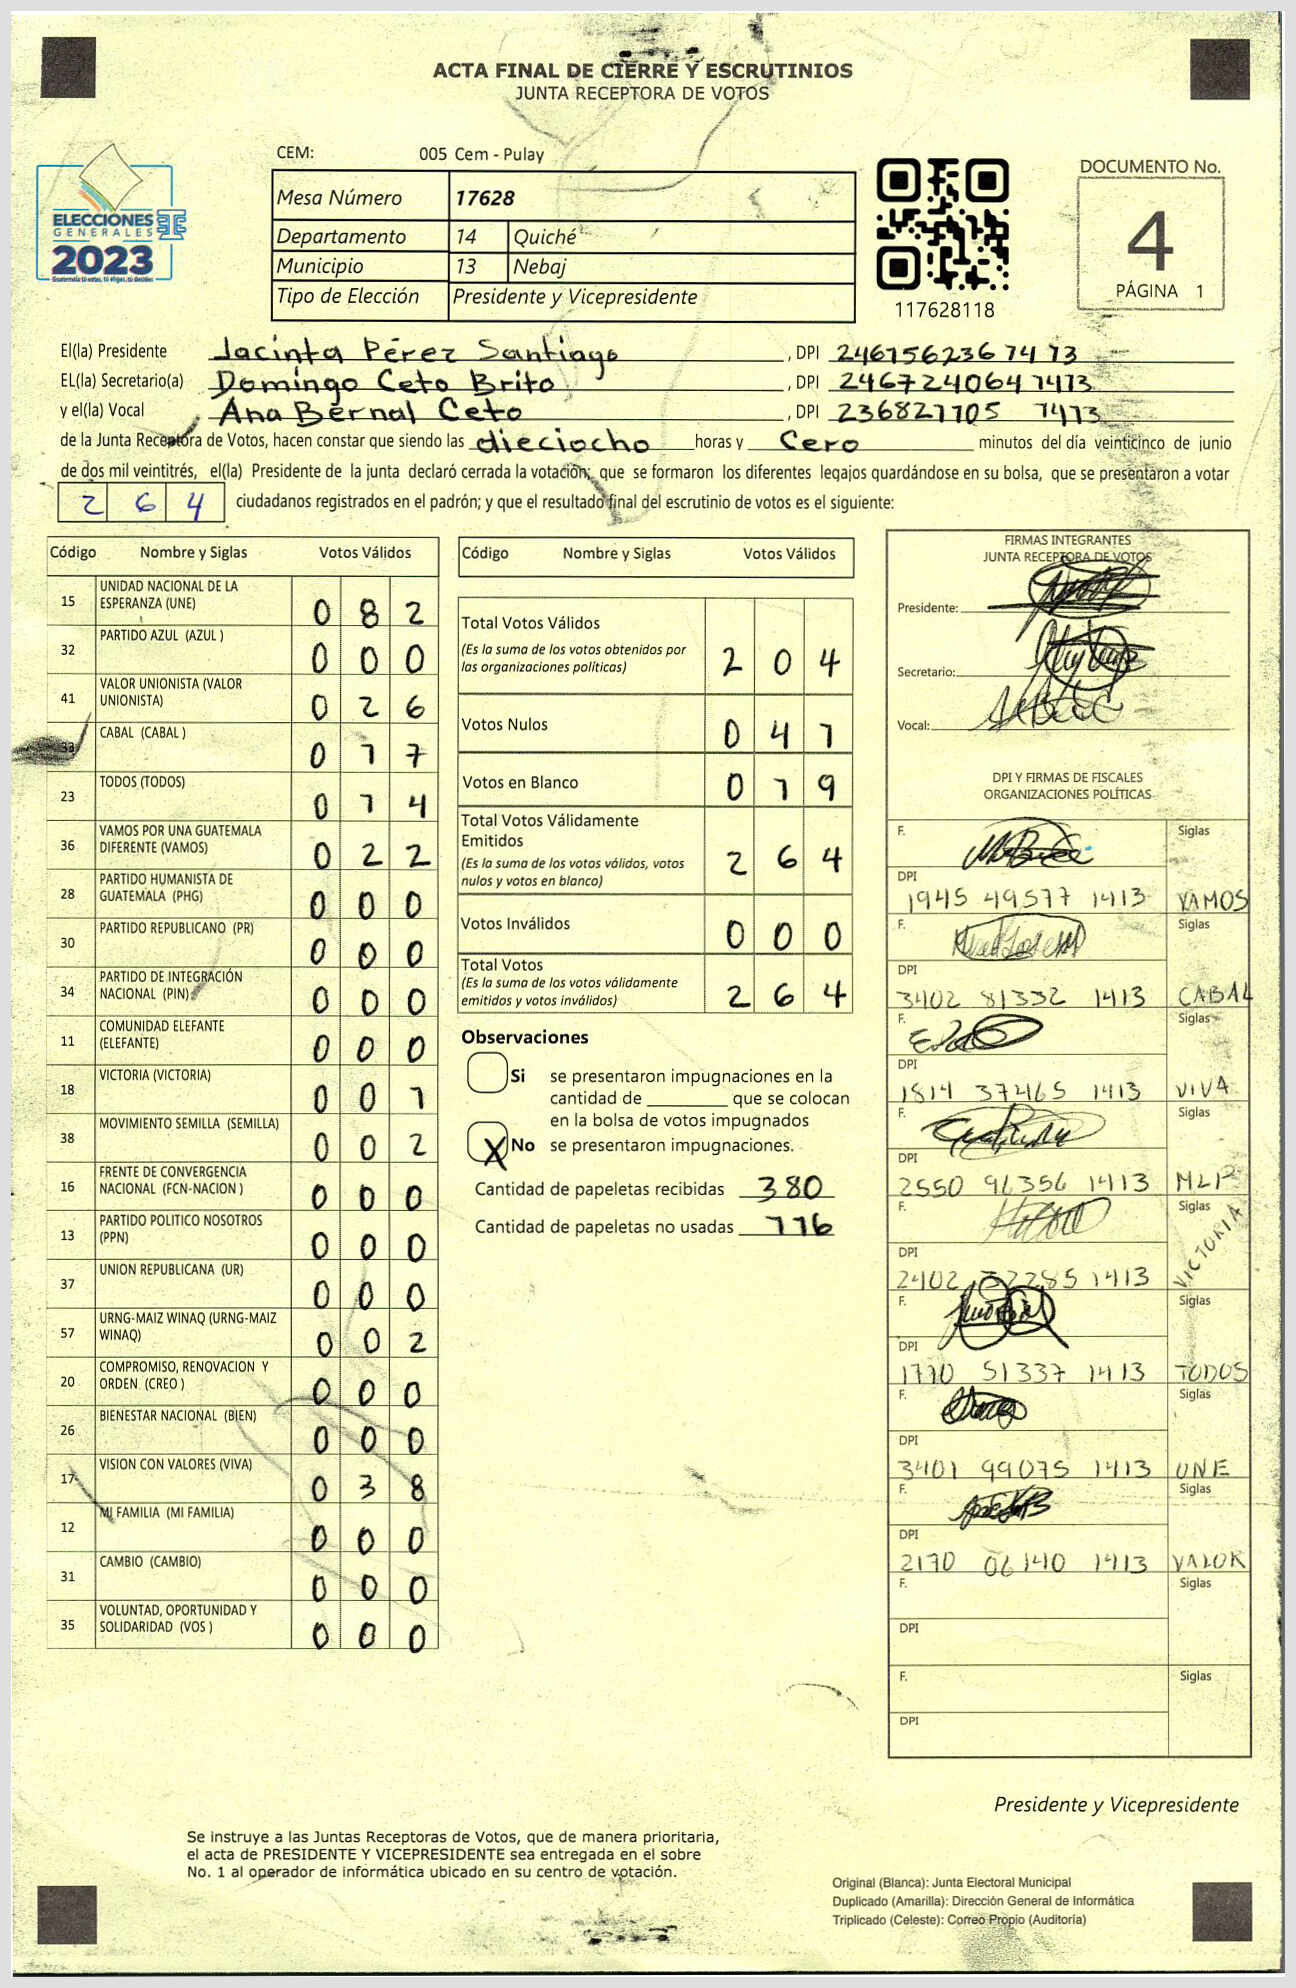 ACTA FINAL DE CIERRE Y ESCRUTINIOS
JUNTA RECEPTORA DE VOTOS
CEM: 005 Cem - Pulay
Mesa Número 17628
Departamento 14 Quiché
Municipio 13 Nebaj
Tipo de Elección Presidente y Vicepresidente
ELECCIONES
GENERALES
2023
117628118
DOCUMENTO No.
4
PÁGINA 1
El(la) Presidente Jacinta Pérez Santiago, DPI 2467562367413
EL(la) Secretario(a) Domingo Ceto Brito, DPI 2467240641413
y el(la) Vocal Ana Bernal Ceto, DPI 236821105 1413
de la Junta Receptora de Votos, hacen constar que siendo las dieciocho horas y Cero minutos del día veinticinco de junio
de dos mil veintitrés, el(la) Presidente de la junta declaró cerrada la votación; que se formaron los diferentes legajos quardándose en su bolsa, que se presentaron a votar
264 ciudadanos registrados en el padrón; y que el resultado final del escrutinio de votos es el siguiente:
Código Nombre y Siglas Votos Válidos
15 UNIDAD NACIONAL DE LA ESPERANZA (UNE) 0 8 2
32 PARTIDO AZUL (AZUL ) 0 0 0
41 VALOR UNIONISTA (VALOR UNIONISTA) 0 2 6
33 CABAL (CABAL ) 0 1 7
23 TODOS (TODOS) 0 1 4
36 VAMOS POR UNA GUATEMALA DIFERENTE (VAMOS) 0 2 2
28 PARTIDO HUMANISTA DE GUATEMALA (PHG) 0 0 0
30 PARTIDO REPUBLICANO (PR) 0 0 0
34 PARTIDO DE INTEGRACIÓN NACIONAL (PIN) 0 0 0
11 COMUNIDAD ELEFANTE (ELEFANTE) 0 0 0
18 VICTORIA (VICTORIA) 0 0 1
38 MOVIMIENTO SEMILLA (SEMILLA) 0 0 2
16 FRENTE DE CONVERGENCIA NACIONAL (FCN-NACION ) 0 0 0
13 PARTIDO POLITICO NOSOTROS (PPN) 0 0 0
37 UNION REPUBLICANA (UR) 0 0 0
57 URNG-MAIZ WINAQ (URNG-MAIZ WINAQ) 0 0 2
20 COMPROMISO, RENOVACION Y ORDEN (CREO ) 0 0 0
26 BIENESTAR NACIONAL (BIEN) 0 0 0
17 VISION CON VALORES (VIVA) 0 3 8
12 MI FAMILIA (MI FAMILIA) 0 0 0
31 CAMBIO (CAMBIO) 0 0 0
35 VOLUNTAD, OPORTUNIDAD Y SOLIDARIDAD (VOS ) 0 0 0
Código Nombre y Siglas Votos Válidos
Total Votos Válidos 2 0 4
(Es la suma de los votos obtenidos por
las organizaciones políticas)
Votos Nulos 0 4 1
Votos en Blanco 0 1 9
Total Votos Válidamente
Emitidos 2 6 4
(Es la suma de los votos válidos, votos
nulos y votos en blanco)
Votos Inválidos 0 0 0
Total Votos 2 6 4
(Es la suma de los votos válidamente
emitidos y votos inválidos)
Observaciones
Si se presentaron impugnaciones en la
cantidad de ________ que se colocan
en la bolsa de votos impugnados
X No se presentaron impugnaciones.
Cantidad de papeletas recibidas 380
Cantidad de papeletas no usadas 116
FIRMAS INTEGRANTES
JUNTA RECEPTORA DE VOTOS
Presidente:
Secretario:
Vocal:
DPI Y FIRMAS DE FISCALES
ORGANIZACIONES POLÍTICAS
F. Siglas
DPI 1945 49577 1413 VAMOS
F. Siglas
DPI 3402 81332 1413 CABAL
F. Siglas
DPI 1814 37465 1413 VIVA
F. Siglas
DPI 2550 96356 1413 MLP
F. Siglas
DPI 2402 32285 1413 VICTORIA
F. Siglas
DPI 1770 51337 1413 TODOS
F. Siglas
DPI 3401 99075 1413 UNE
F. Siglas
DPI 2170 06140 1413 VALOR
F. Siglas
DPI
F. Siglas
DPI
Presidente y Vicepresidente
Se instruye a las Juntas Receptoras de Votos, que de manera prioritaria,
el acta de PRESIDENTE Y VICEPRESIDENTE sea entregada en el sobre
No. 1 al operador de informática ubicado en su centro de votación.
Original (Blanca): Junta Electoral Municipal
Duplicado (Amarilla): Dirección General de Informática
Triplicado (Celeste): Correo Propio (Auditoría)